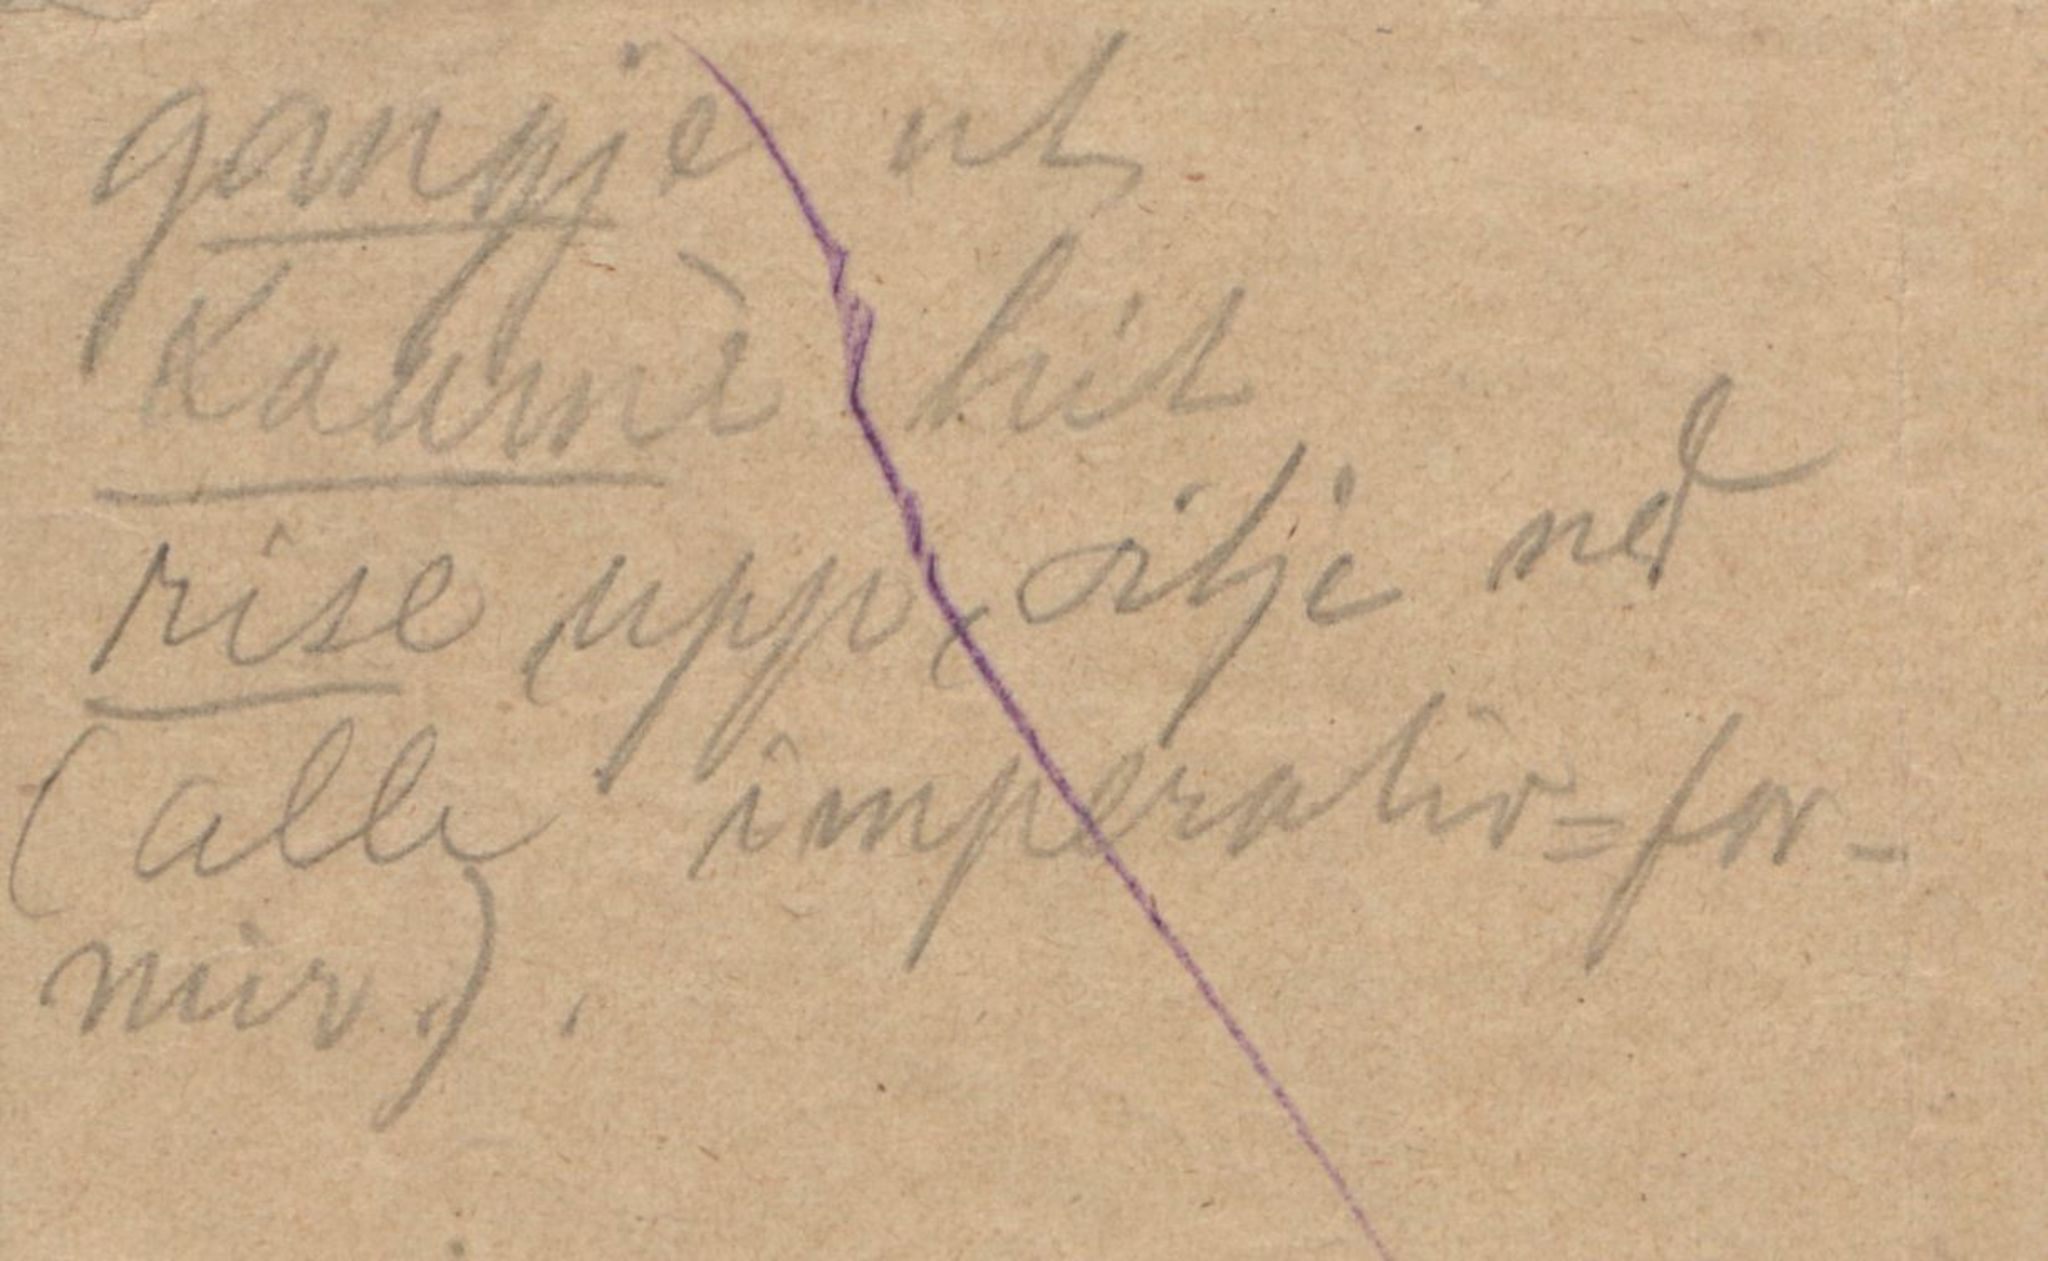 gangje ut
Kaumè hit
rise upp, sitje ned
(alle imperativ=for-
mir.).